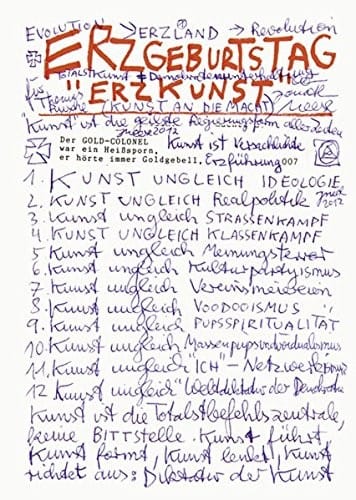 EVOLUTION → ERZLAND → Revolution
ERZGEBURTSTAG
TOTALSTKunst ≠
"ERZKUNST"
(KUNST AN DIE MACHT) Meese
"Kunst" ist die geilste Regierungsform aller Zeiten
Meese 2012
Kunst ist Verschlußte
Der GOLD-COLONEL
war ein Heißsporn,
er hörte immer Goldgebell. Erzführung 007
1. KUNST UNGLEICH IDEOLOGIE
2. KUNST UNGLEICH Realpolitik Meese 2012
3. Kunst ungleich STRASSENKAMPF
4. KUNST UNGLEICH KLASSENKAMPF
5. Kunst ungleich Meinungsterror
6. Kunst ungleich Kulturpartyismus
7. Kunst ungleich Vereinsmeierein
8. Kunst ungleich VOODOOISMUS
9. Kunst ungleich PUPSSPIRITUALITÄT
10. Kunst ungleich
11. Kunst ungleich "ICH" - Netzwerk
12 Kunst ungleich "Weltdiktatur der Demokratie
Kunst ist die Totalstbefehlszentrale,
keine BITTSTELLE. Kunst führt,
Kunst formt, Kunst lenkt, Kunst
richtet aus: Diktatur der Kunst